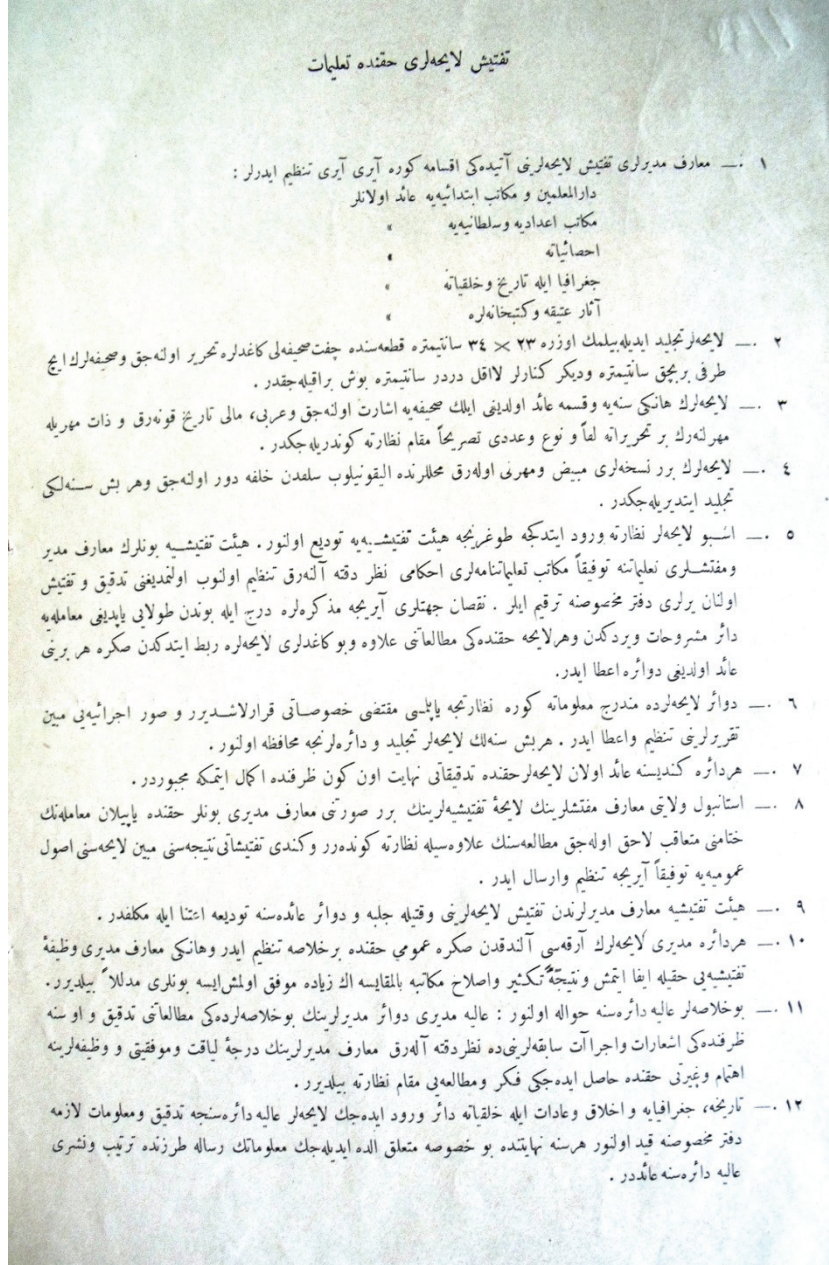 تفتيش لايحه‌لرى حقنده تعليمات
١ — معارف مديرلرى تفتيش لايحه‌لرينى آتيده‌كى اقسامه كوره آيرى آيرى تنظيم ايدرلر :
دارالمعلمين و مكاتب ابتدائيه‌يه عائد اولانلر
مكاتب اعداديه وسلطانيه‌يه »
احصائياته »
جغرافيا ايله تاريخ وخلقياته »
آثار عتيقه وكتبخانه‌لره »
٢ — لايحه‌لر تجليد ايديله‌بيلمك اوزره ٢٣ × ٣٤ سانتيمتره قطعه‌سنده چفت صحيفه‌لى كاغدلره تحرير اولنه‌جق وصحيفه‌لرك ايچ
طرفى بر بچق سانتيمتره وديكر كنارلر لااقل دردر سانتيمتره بوش براقيله‌جقدر .
٣ — لايحه‌لرك هانكى سنه‌يه وقسمه عائد اولديغى ايلك صحيفه‌يه اشارت اولنه‌جق وعربى، مالى تاريخ قونه‌رق و ذات مهريله
مهرلنه‌رك بر تحريراته لفاً و نوع وعددى تصريحاً مقام نظارته كوندريله‌جكدر .
٤ — لايحه‌لرك برر نسخه‌لرى مبيض ومهرلى اوله‌رق محللرنده اليقونيلوب سلفدن خلفه دور اولنه‌جق وهر بش سنه‌لكى
تجليد ايتديريله‌جكدر .
٥ — اشبو لايحه‌لر نظارته ورود ايتدكجه طوغريجه هيئت تفتيشيه‌يه توديع اولنور . هيئت تفتيشيه بونلرك معارف مدير
ومفتشلرى تعليماتنه توفيقاً مكاتب تعليماتنامه‌لرى احكامى نظر دقته آلنه‌رق تنظيم اولنوب اولنمديغنى تدقيق و تفتيش
اولنان يرلرى دفتر مخصوصنه ترقيم ايلر . نقصان جهتلرى آيريجه مذكره‌لره درج ايله بوندن طولايى ياپديغى معامله‌يه
دائر مشروحات ويردكدن وهرلايحه حقنده‌كى مطالعاتنى علاوه وبو كاغدلرى لايحه‌لره ربط ايتدكدن صكره هر برينى
عائد اولديغى دوائره اعطا ايدر.
٦ — دوائر لايحه‌لرده مندرج معلوماته كوره نظارتجه ياپلسى مقتضى خصوصاتى قرارلاشديرر و صور اجرائيه‌يى مبين
تقريرلرينى تنظيم واعطا ايدر . هربش سنه‌لك لايحه‌لر تجليد و دائره‌لرنجه محافظه اولنور .
٧ — هردائره كنديسنه عائد اولان لايحه‌لر حقنده تدقيقاتى نهايت اون كون ظرفنده اكمال ايتمكه مجبوردر .
٨ — استانبول ولايتى معارف مفتشلرينك لايحۀ تفتيشيه‌لرينك برر صورتنى معارف مديرى بونلر حقنده ياپيلان معامله‌نك
ختامنى متعاقب لاحق اوله‌جق مطالعه‌سنك علاوه‌سيله نظارته كوندرر وكندى تفتيشاتى نتيجه‌سنى مبين لايحه‌سنى اصول
عموميه‌يه توفيقاً آيريجه تنظيم وارسال ايدر .
٩ — هيئت تفتيشيه معارف مديرلرندن تفتيش لايحه‌لرينى وقتيله جلبه و دوائر عائده‌سنه توديعه اعتنا ايله مكلفدر .
١٠ — هردائره مديرى لايحه‌لرك آرقه‌سى آلندقدن صكره عمومى حقنده برخلاصه تنظيم ايدر وهانكى معارف مديرى وظيفۀ
تفتيشيه‌يى حقيله ايفا ايتمش ونتيجةً تكثير واصلاح مكاتبه بالمقايسه اك زياده موفق اولمش‌ايسه بونلرى مدللاً بيلديرر.
١١ — بوخلاصه‌لر عاليه دائره‌سنه حواله اولنور : عاليه مديرى دوائر مديرلرينك بوخلاصه‌لرده‌كى مطالعاتنى تدقيق و او سنه
ظرفنده‌كى اشعارات واجراآت سابقه‌لرينى‌ده نظردقته آله‌رق معارف مديرلرينك درجۀ لياقت وموفقيتى و وظيفه‌لرينه
اهتمام وغيرتى حقنده حاصل ايده‌جكى فكر ومطالعه‌يى مقام نظارته بيلديرر .
١٢ — تاريخه، جغرافيايه و اخلاق وعادات ايله خلقياته دائر ورود ايده‌جك لايحه‌لر عاليه دائره‌سنجه تدقيق ومعلومات لازمه
دفتر مخصوصنه قيد اولنور هرسنه نهايتنده بو خصوصه متعلق الده ايديله‌جك معلوماتك رساله طرزنده ترتيب ونشرى
عاليه دائره‌سنه عائددر .